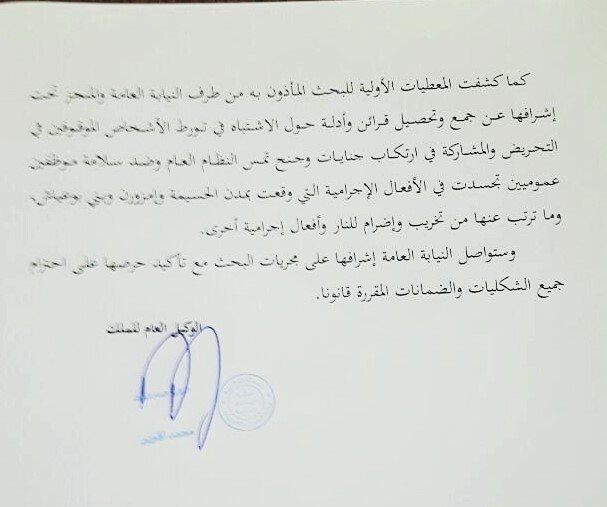 كما كشفت المعطيات الأولية للبحث المأذون به من طرف النيابة العامة والمنجز تحت
إشرافها عن جمع وتحصيل قرائن وأدلة حول الاشتباه في تورط الأشخاص الموقوفين في
التحريض والمشاركة في ارتكاب جنايات وجنح تمس النظام العام وضد سلامة موظفين
عموميين تجسدت في الأفعال الإجرامية التي وقعت بمدن الحسيمة وإمزورن وبني بوعياش،
وما ترتب عنها من تخريب وإضرام للنار وأفعال إجرامية أخرى.
وستواصل النيابة العامة إشرافها على مجريات البحث مع تأكيد حرصها على احترام
جميع الشكليات والضمانات المقررة قانونا.
الوكيل العام للملك
محمد